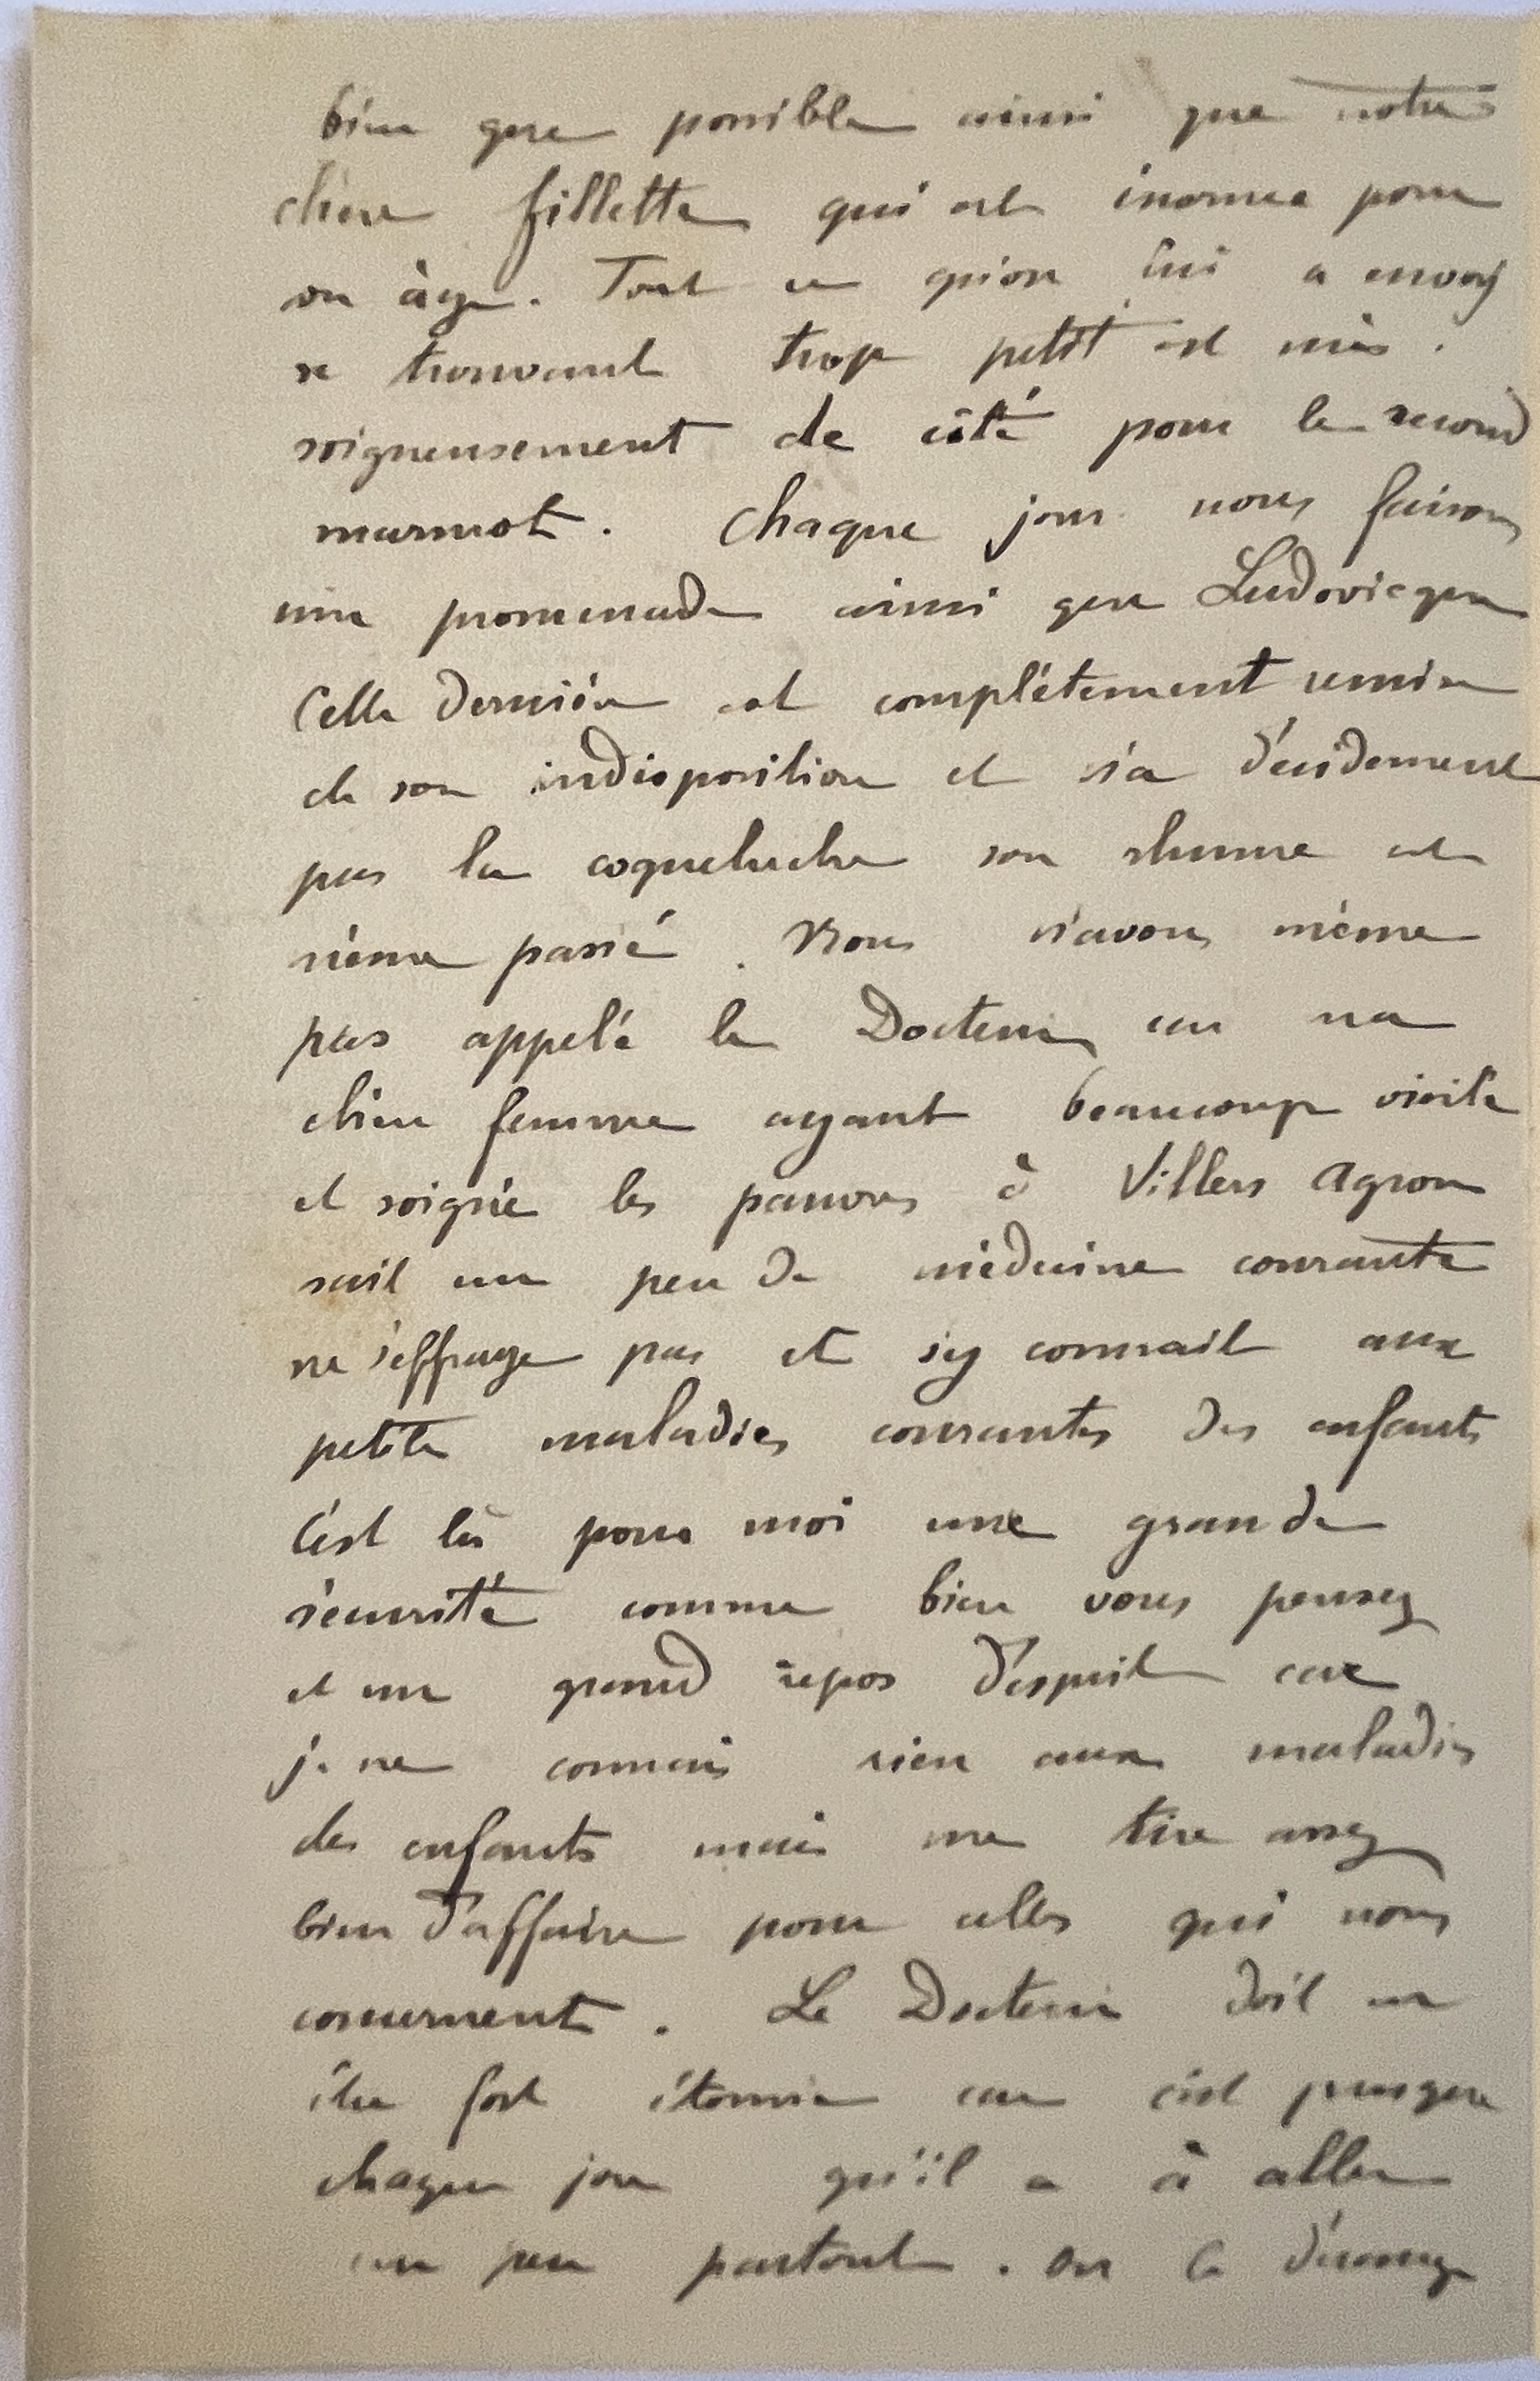 bien que possible ainsi que notre
chère fillette qui est énorme pour
son âge. Tout ce qu'on lui a envoyé
se trouvant trop petit est mis
soigneusement de côté pour le second
marmot. Chaque jour nous faisons
une promenade ainsi que Ludovicque
Cette dernière est complètement remise
de son indisposition et n'a décidément
pas la coqueluche son rhume est
même passé. Nous n'avons même
pas appelé le Docteur car ma
chère femme ayant beaucoup visité
et soigné les pauvres à Villers Agron
sait un peu de médecine courante
ne s'effraye pas et s'y connait aux
petites maladies courantes des enfants
C'est là pour moi une grande
sécurité comme bien vous pensez
et un grand repos d'esprit car
je ne connais rien aux maladies
des enfants mais me tire assez
bien d'affaire pour celles qui nous
concernent. Le Docteur doit en
être fort étonné car c'est presque
chaque jour qu'il a à aller
un peu partout. On le dérange